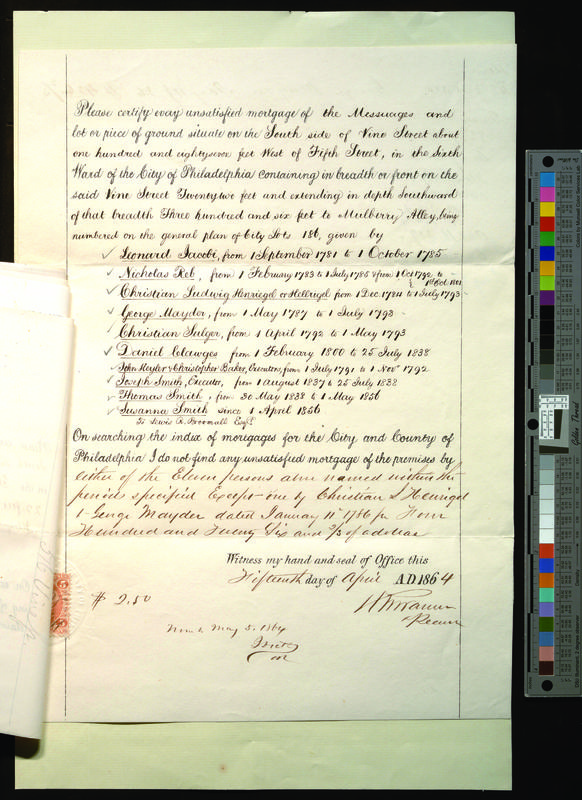 Please certify every unsatisfied mortgage of the Messuages and
lot or piece of ground situate on the South side of Vine Street about
one hundred and eightyseven feet West of Fifth Street, in the Sixth
Ward of the City of Philadelphia containing in breadth or front on the
said Vine Street Twentytwo feet and extending in depth Southward
of that breadth Three hundred and six feet to Mulberry Alley, being
numbered on the general plan of City Lots 186, given by
Leonard Jacobi, from 1 September 1781 to 1 October 1785
Nicholas Reb, from 1 February 1783 to 1 July 1785 & from 1 Oct 1792 to
1st Oct. 1801
Christian Ludwig Henriegel or Hellrigel from 1 Dec 1784 to 1 July 1793
George Mayder, from 1 May 1787 to 1 July 1793
Christian Sulger, from 1 April 1792 to 1 May 1793
Daniel Clawges from 1 February 1800 to 25 July 1838
John Mayler & Christopher Baker, Executors, from 1 July 1791 to 1 Nov 1792
Joseph Smith, Executor, from 1 August 1837 to 25 July 1838
Thomas Smith, from 30 May 1838 to 1 May 1856
Susanna Smith since 1 April 1856
To Lewis R. Broomall Esqr.
On searching the index of mortgages for the City and County of
Philadelphia I do not find any unsatisfied mortgage of the premises by
either of the Eleven persons above named within the
periods specified Except one by Christian L Henrigel
to George Mayder dated January 11th 1786 for Four
Hundred and Twenty Six and 2/3 of a dollar
Witness my hand and seal of Office this
Fifteenth day of April AD 1864
$ 2.50
Recorder
May 5. 1864